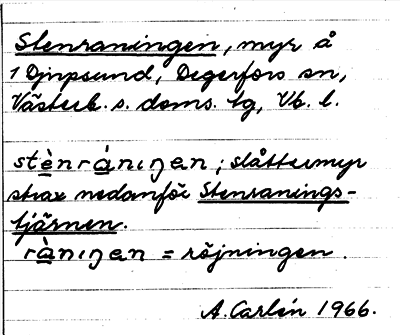 Stenraningen, myr å
1 Djupsund, Degerfors sn,
Västerb. s. doms. tg, Vb. l.
stènràniŋen; slåttermyr
strax nedanför Stenranings-
tjärnen.
ràniŋen = röjningen.
A. Carlén 1966.